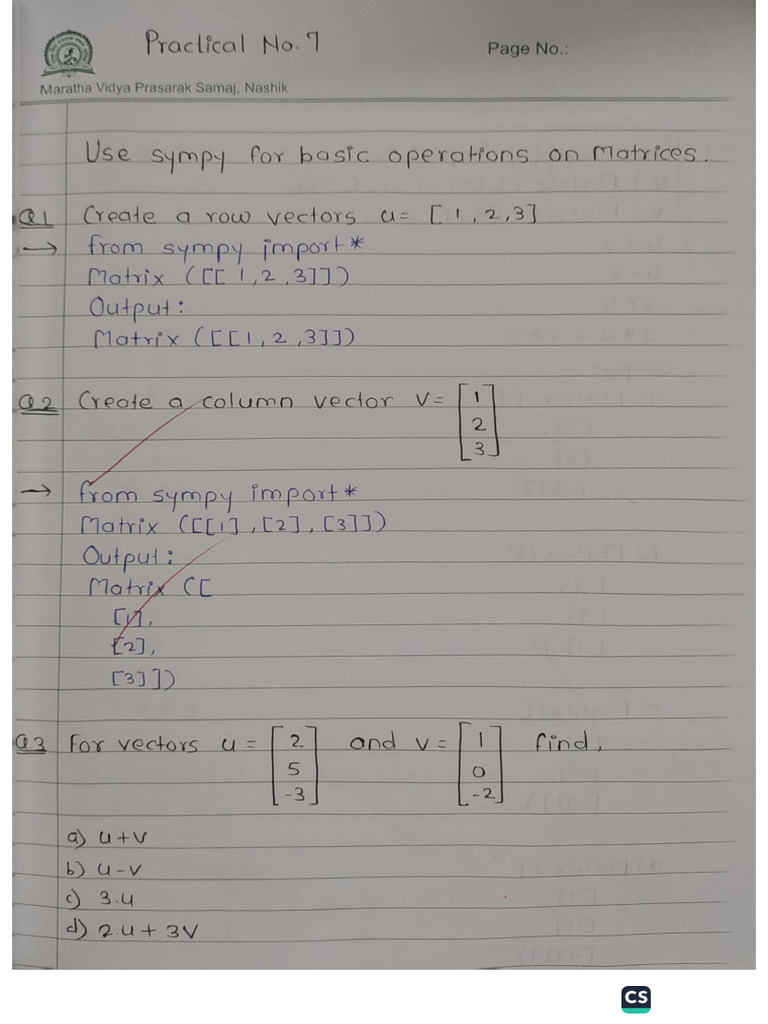 Practical No. 7
Page No.:
Maratha Vidya Prasarak Samaj, Nashik
Use sympy for basic operations on Matrices.
Q1 Create a row vectors u= [1,2,3]
→ from sympy import*
Matrix ([[1,2,3]])
Output:
Matrix ([[1,2,3]])
Q2 Create a column vector v= [1
2
3]
→ from sympy import*
Matrix ([[1],[2],[3]])
Output:
Matrix ([
[1],
[2],
[3]])
Q3 For vectors u= [2 and v= [1 find,
5 0
-3] -2]
a) u+v
b) u-v
c) 3.u
d) 2.u + 3v
CS